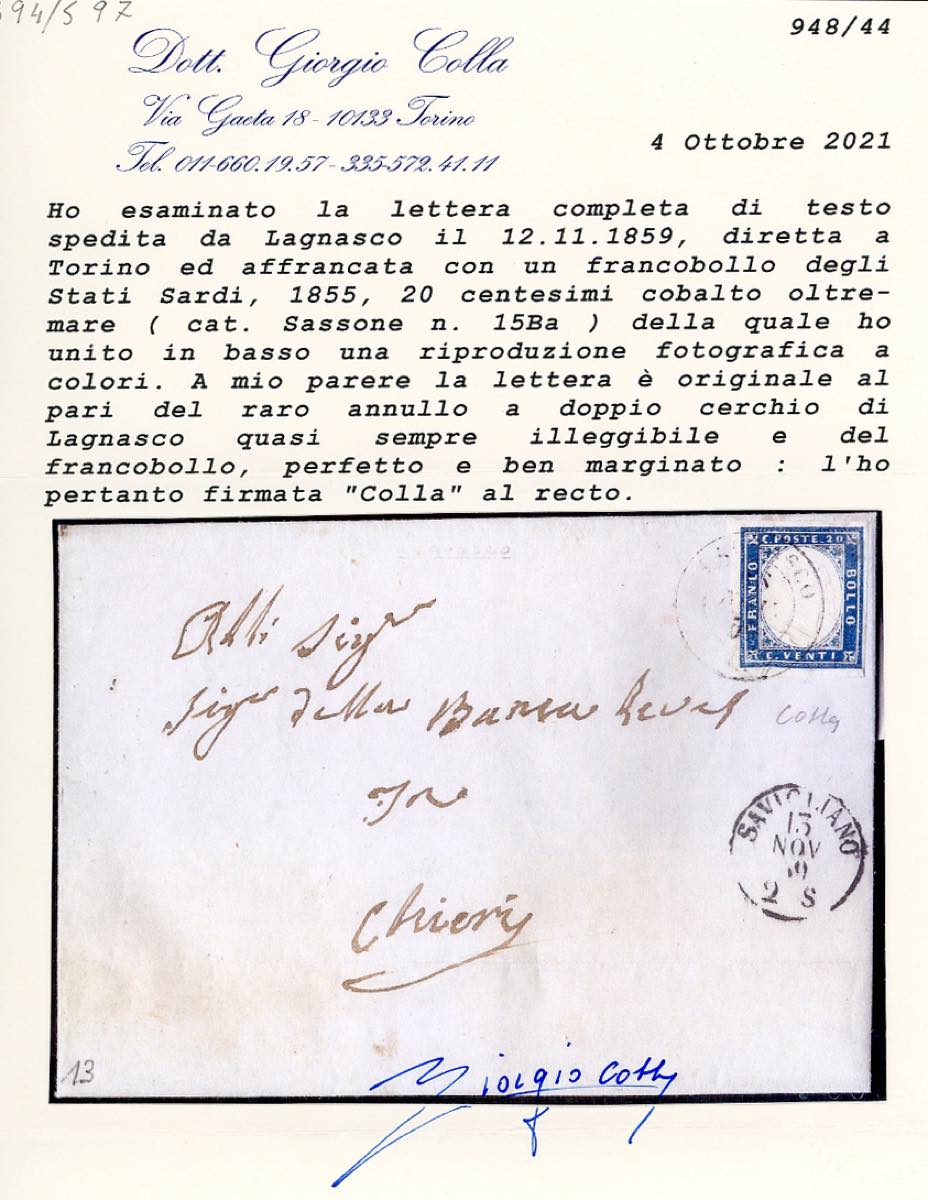 94/597
948/44
Dott. Giorgio Colla
Via Gaeta 18 - 10133 Torino
Tel. 011-660.19.57 - 335-572.41.11
4 Ottobre 2021
Ho esaminato la lettera completa di testo
spedita da Lagnasco il 12.11.1859, diretta a
Torino ed affrancata con un francobollo degli
Stati Sardi, 1855, 20 centesimi cobalto oltre-
mare ( cat. Sassone n. 15Ba ) della quale ho
unito in basso una riproduzione fotografica a
colori. A mio parere la lettera è originale al
pari del raro annullo a doppio cerchio di
Lagnasco quasi sempre illeggibile e del
francobollo, perfetto e ben marginato : l'ho
pertanto firmata "Colla" al recto.
C. POSTE. 20
FRANCO
BOLLO
C. VENTI
Sig.ri
della Banca
Colla
In
SAVIGLIANO
13
NOV
59
2 S
Chieri
13
Giorgio Colla